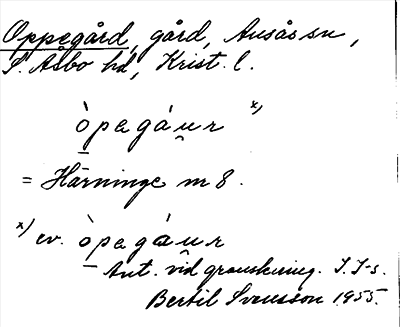 Oppegård, gård, Ausås sn,
S. Åsbo hd, Krist. l.
ò p e g á u r x)
= Härninge nr 8.
x) ev. ò p e g á u r
Ant. vid granskning. I. I-s.
Bertil Svensson 1955.